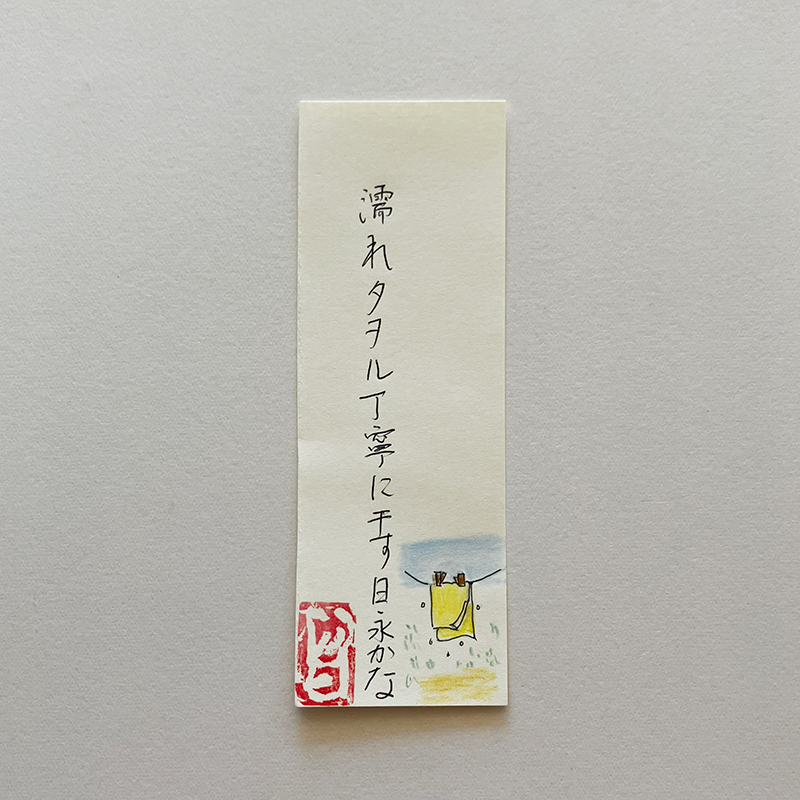 濡れタヲル丁寧に干す日永かな